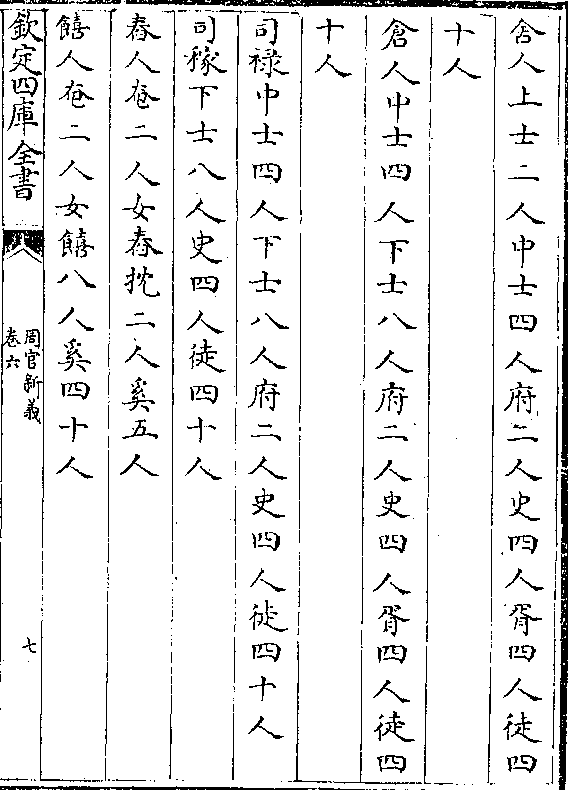 舎人上士二人中士四人府二人史四人胥四人徒四
十人
倉人中士四人下士八人府二人史四人胥四人徒四
十人
司禄中士四人下士八人府二人史四人徒四十人
司稼下士八人史四人徒四十人
舂人奄二人女舂抌二人奚五人
饎人奄二人女饎八人奚四十人
欽定四庫全書
周官新義
卷六
七